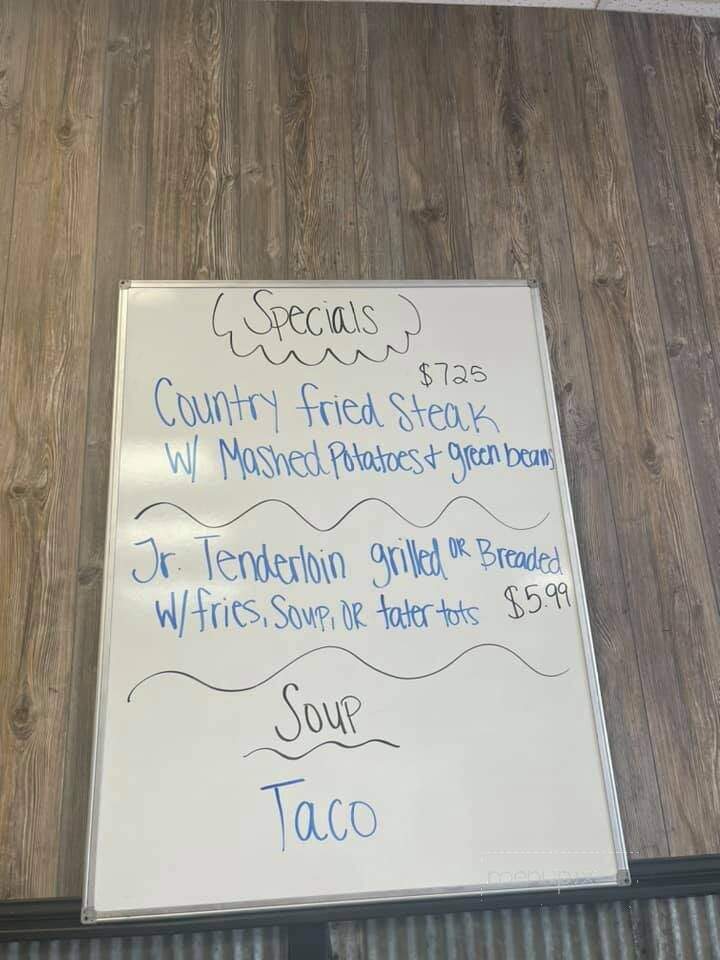 Specials
$725
Country fried Steak
W/ Mashed Potatoes + green beans
Jr. Tenderloin grilled OR Breaded
W/fries, Soup, OR tater tots $5.99
Soup
Taco
menupix